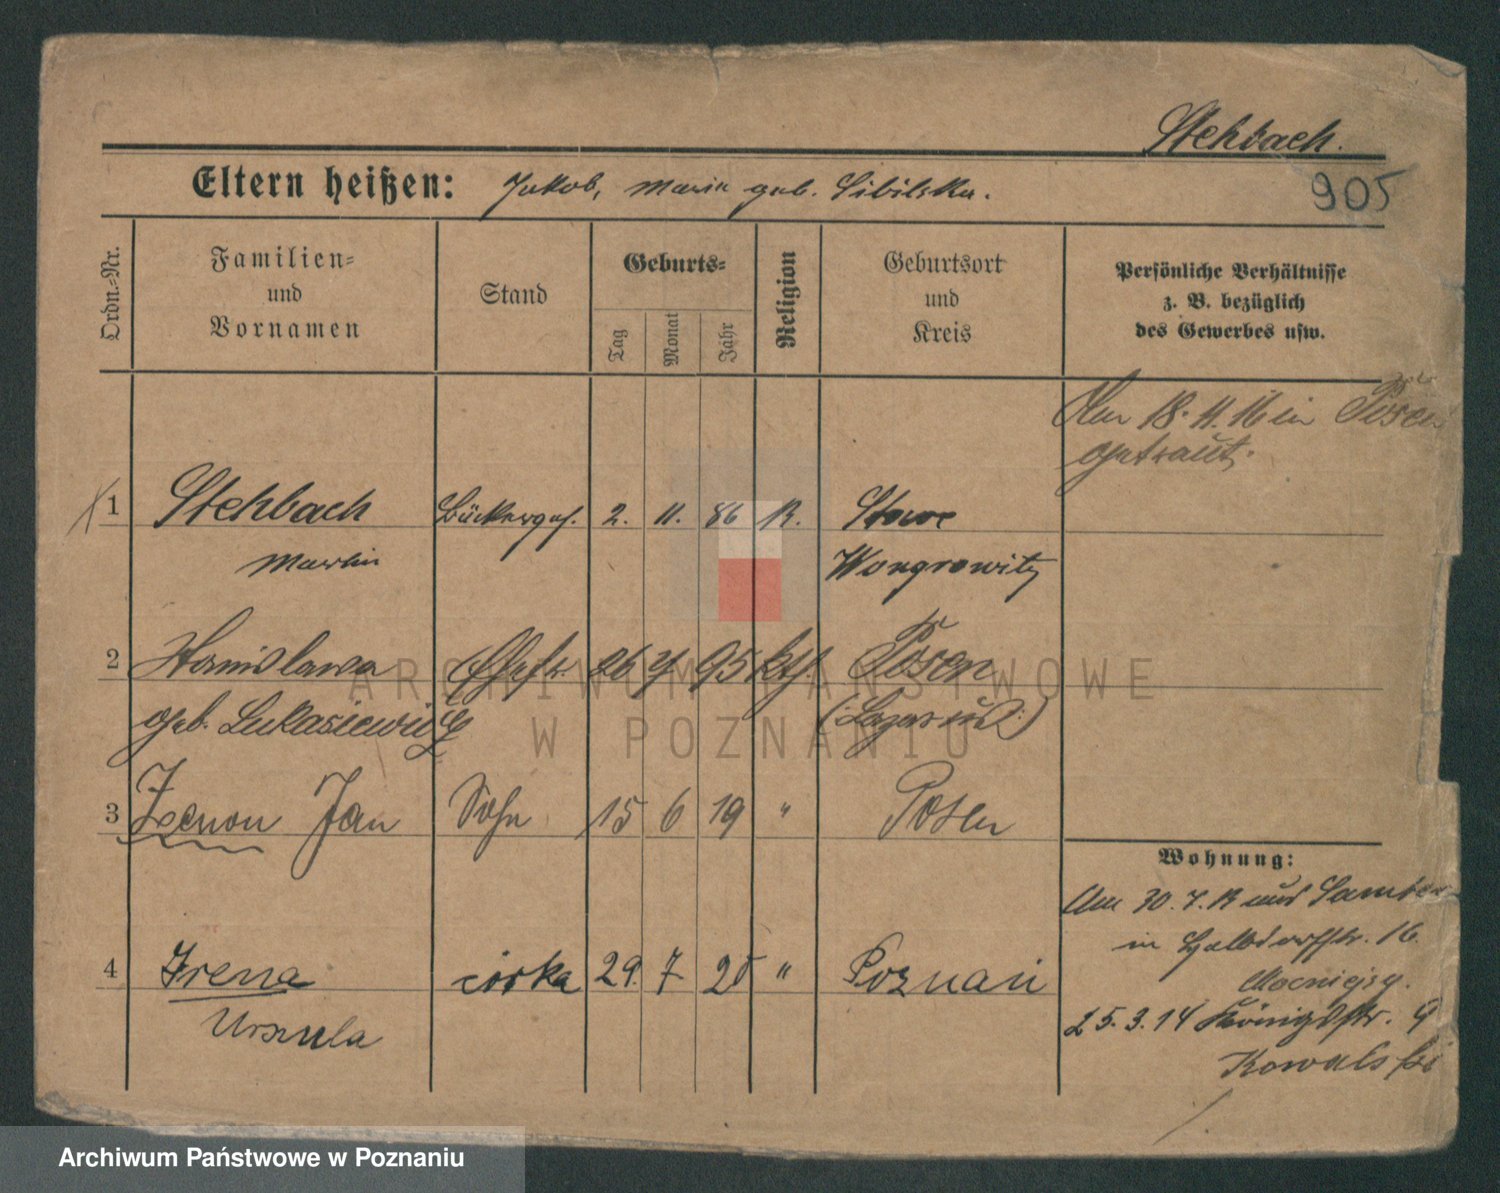 Stehbach.
Eltern heißen: Jakob, Marie geb. Sibilska.
905
Ordn.-Nr.
Familien-
und
Vornamen
Stand
Geburts-
Tag
Monat
Jahr
Religion
Geburtsort
und
Kreis
Persönliche Verhältnisse
z. B. bezüglich
des Gewerbes usw.
Am 18.11.16 in Posen
getraut.
1 Stehbach Bäckerges. 2. 11. 86 R.
Martin Wongrowitz
2 Stanislawa Ehefr. 26 95 kth. Posen
geb. Lukasiewicz (Lazarus)
3 Zenon Jan Sohn 15 6 19 " Posen
Wohnung:
Am 30.7. aus Samter
in 16.
4 Irena córka 29. 7 20 " Poznań
Urszula
25.3.14 Königstr. 9
Kowalski
ARCHIWUM PAŃSTWOWE
W POZNANIU
Archiwum Państwowe w Poznaniu